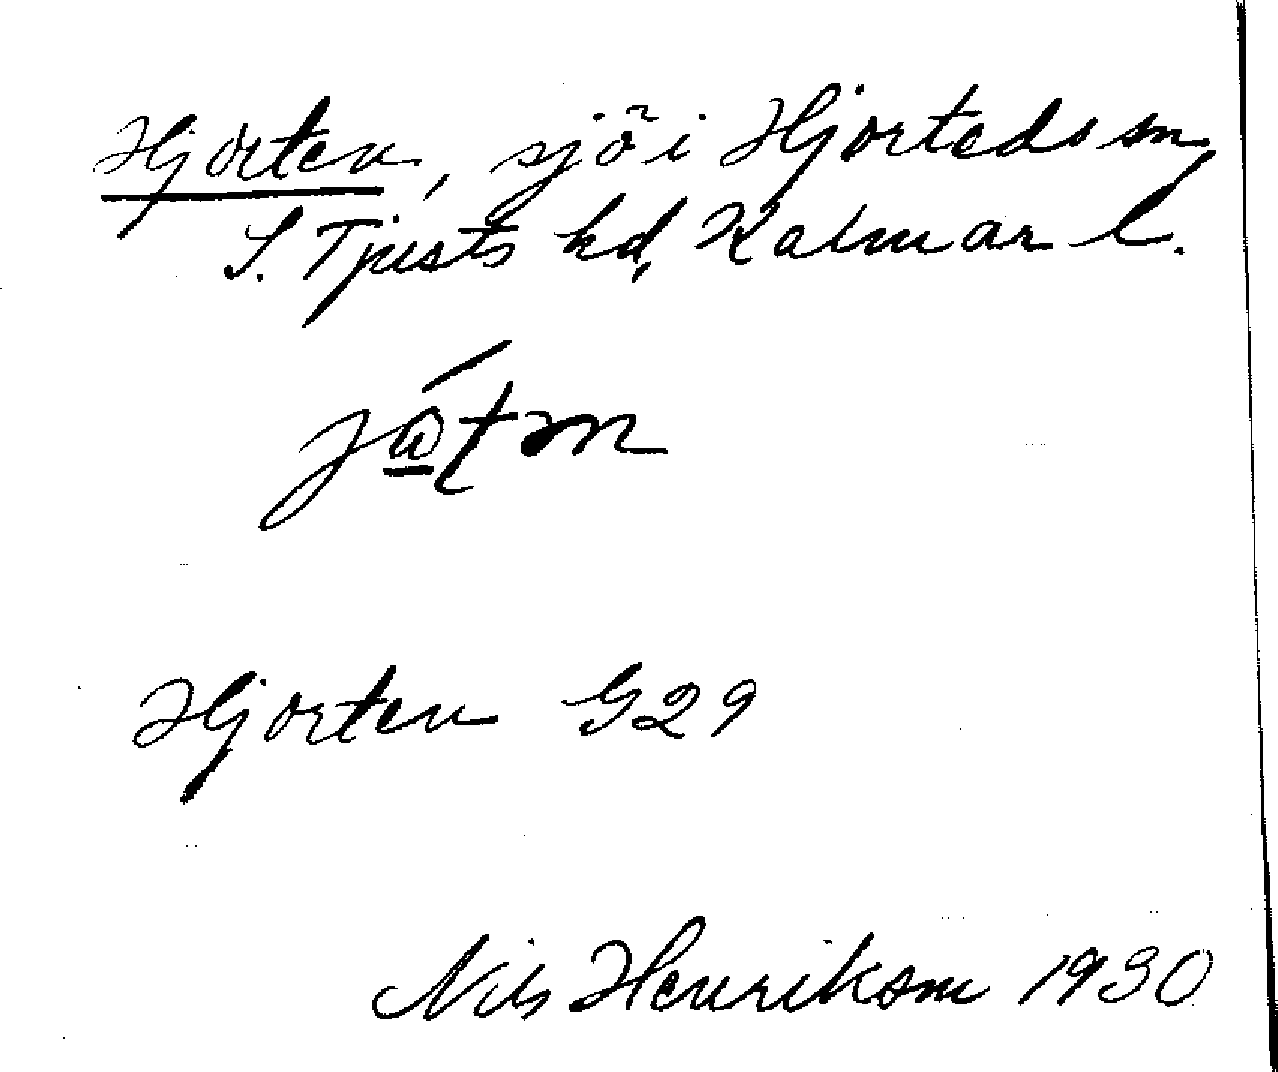 Hjorten, sjö i Hjorteds sn,
S. Tjusts hd, Kalmar l.
Hjorten G29
Nils Henrikson 1930